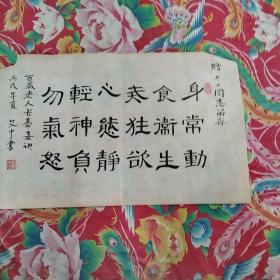 赠人人同志留存
身常動
食衛生
去狂欲
心態静
輕神負
勿氣怒
百歲老人长寿要訣
丙戌年夏 文中書